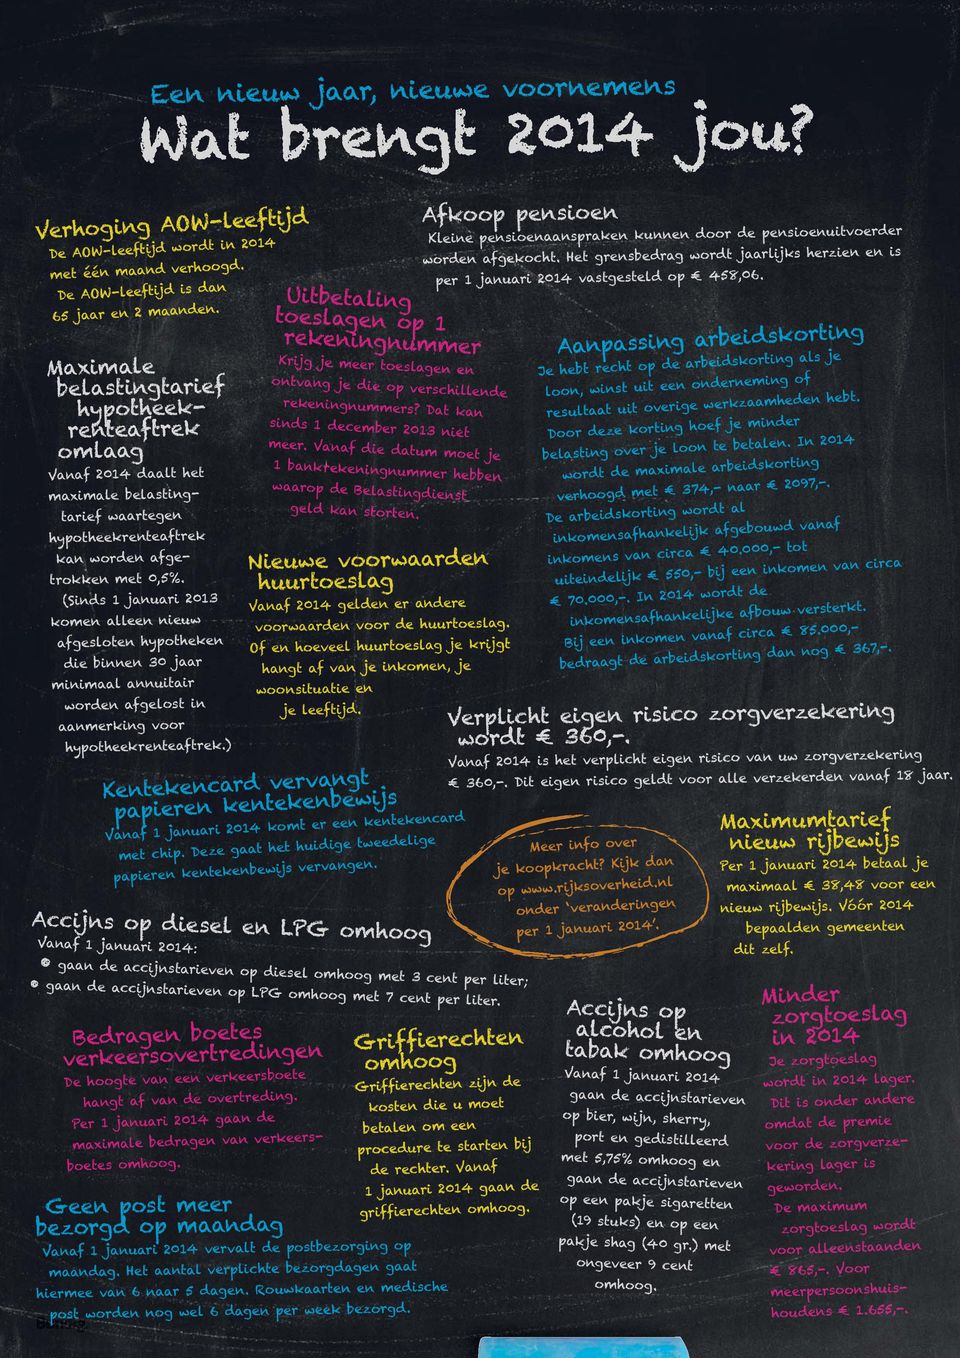 Een nieuw jaar, nieuwe voornemens
Wat brengt 2014 jou?
Verhoging AOW-leeftijd
De AOW-leeftijd wordt in 2014
met één maand verhoogd.
De AOW-leeftijd is dan
65 jaar en 2 maanden.
Afkoop pensioen
Kleine pensioenaanspraken kunnen door de pensioenuitvoerder
worden afgekocht. Het grensbedrag wordt jaarlijks herzien en is
per 1 januari 2014 vastgesteld op € 458,06.
Uitbetaling
toeslagen op 1
rekeningnummer
Krijg je meer toeslagen en
ontvang je die op verschillende
rekeningnummers? Dat kan
sinds 1 december 2013 niet
meer. Vanaf die datum moet je
1 bankrekeningnummer hebben
waarop de Belastingdienst
geld kan storten.
Maximale
belastingtarief
hypotheek-
renteaftrek
omlaag
Vanaf 2014 daalt het
maximale belasting-
tarief waartegen
hypotheekrenteaftrek
kan worden afge-
trokken met 0,5%.
(Sinds 1 januari 2013
komen alleen nieuw
afgesloten hypotheken
die binnen 30 jaar
minimaal annuitair
worden afgelost in
aanmerking voor
hypotheekrenteaftrek.)
Aanpassing arbeidskorting
Je hebt recht op de arbeidskorting als je
loon, winst uit een onderneming of
resultaat uit overige werkzaamheden hebt.
Door deze korting hoef je minder
belasting over je loon te betalen. In 2014
wordt de maximale arbeidskorting
verhoogd met € 374,- naar € 2097,-.
De arbeidskorting wordt al
inkomensafhankelijk afgebouwd vanaf
inkomens van circa € 40.000,- tot
uiteindelijk € 550,- bij een inkomen van circa
€ 70.000,-. In 2014 wordt de
inkomensafhankelijke afbouw versterkt.
Bij een inkomen vanaf circa € 85.000,-
bedraagt de arbeidskorting dan nog € 367,-.
Nieuwe voorwaarden
huurtoeslag
Vanaf 2014 gelden er andere
voorwaarden voor de huurtoeslag.
Of en hoeveel huurtoeslag je krijgt
hangt af van je inkomen, je
woonsituatie en
je leeftijd.
Verplicht eigen risico zorgverzekering
wordt € 360,-.
Vanaf 2014 is het verplicht eigen risico van uw zorgverzekering
€ 360,-. Dit eigen risico geldt voor alle verzekerden vanaf 18 jaar.
Kentekencard vervangt
papieren kentekenbewijs
Vanaf 1 januari 2014 komt er een kentekencard
met chip. Deze gaat het huidige tweedelige
papieren kentekenbewijs vervangen.
Meer info over
je koopkracht? Kijk dan
op www.rijksoverheid.nl
onder 'veranderingen
per 1 januari 2014'.
Maximumtarief
nieuw rijbewijs
Per 1 januari 2014 betaal je
maximaal € 38,48 voor een
nieuw rijbewijs. Vóór 2014
bepaalden gemeenten
dit zelf.
Accijns op diesel en LPG omhoog
Vanaf 1 januari 2014:
• gaan de accijnstarieven op diesel omhoog met 3 cent per liter;
• gaan de accijnstarieven op LPG omhoog met 7 cent per liter.
Bedragen boetes
verkeersovertredingen
De hoogte van een verkeersboete
hangt af van de overtreding.
Per 1 januari 2014 gaan de
maximale bedragen van verkeers-
boetes omhoog.
Griffierechten
omhoog
Griffierechten zijn de
kosten die u moet
betalen om een
procedure te starten bij
de rechter. Vanaf
1 januari 2014 gaan de
griffierechten omhoog.
Accijns op
alcohol en
tabak omhoog
Vanaf 1 januari 2014
gaan de accijnstarieven
op bier, wijn, sherry,
port en gedistilleerd
met 5,75% omhoog en
gaan de accijnstarieven
op een pakje sigaretten
(19 stuks) en op een
pakje shag (40 gr.) met
ongeveer 9 cent
omhoog.
Minder
zorgtoeslag
in 2014
Je zorgtoeslag
wordt in 2014 lager.
Dit is onder andere
omdat de premie
voor de zorgverze-
kering lager is
geworden.
De maximum
zorgtoeslag wordt
voor alleenstaanden
€ 865,-. Voor
meerpersoonshuis-
houdens € 1.655,-.
Geen post meer
bezorgd op maandag
Vanaf 1 januari 2014 vervalt de postbezorging op
maandag. Het aantal verplichte bezorgdagen gaat
hiermee van 6 naar 5 dagen. Rouwkaarten en medische
post worden nog wel 6 dagen per week bezorgd.